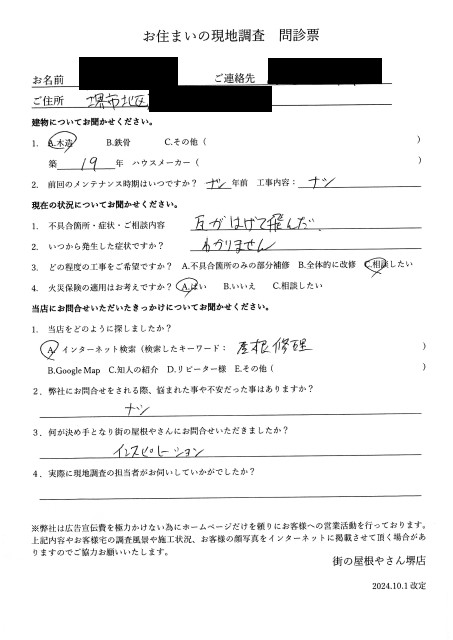 お住まいの現地調査　問診票
お名前　ご連絡先
ご住所　堺市北区
建物についてお聞かせください。
1. A.木造　B.鉄骨　C.その他（　）
築　19　年　ハウスメーカー（　）
2. 前回のメンテナンス時期はいつですか？　ナシ　年前　工事内容：　ナシ
現在の状況についてお聞かせください。
1. 不具合箇所・症状・ご相談内容　瓦がはげて飛んだ。
2. いつから発生した症状ですか？　わかりません
3. どの程度の工事をご希望ですか？　A.不具合箇所のみの部分補修　B.全体的に改修　C.相談したい
4. 火災保険の適用はお考えですか？　A.はい　B.いいえ　C.相談したい
当店にお問合せいただいたきっかけについてお聞かせください。
1. 当店をどのように探しましたか？
A.インターネット検索（検索したキーワード：　屋根修理　）
B.Google Map　C.知人の紹介　D.リピーター様　E.その他（　）
2. 弊社にお問合せをされる際、悩まれた事や不安だった事はありますか？
ナシ
3. 何が決め手となり街の屋根やさんにお問合せいただきましたか？
インスピレーション
4. 実際に現地調査の担当者がお伺いしていかがでしたか？
※弊社は広告宣伝費を極力かけない為にホームページだけを頼りにお客様への営業活動を行っております。
上記内容やお客様宅の調査風景や施工状況、お客様の顔写真をインターネットに掲載させて頂く場合があ
りますのでご協力お願いいたします。
街の屋根やさん堺店
2024.10.1 改定